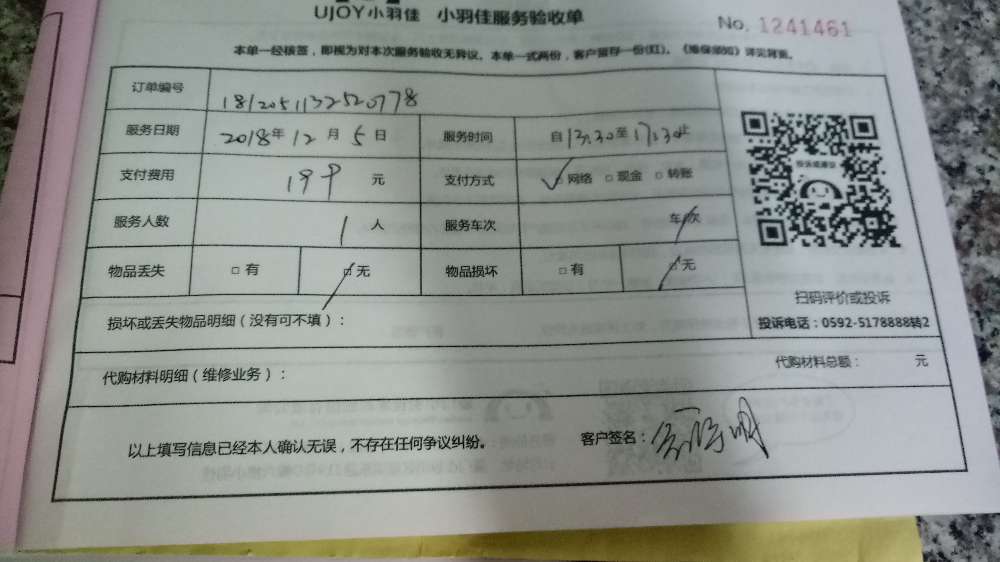 UJOY小羽佳 小羽佳服务验收单
No. 1241461
本单一经核签，即视为对本次服务验收无异议。本单一式两份，客户留存一份(红)。《维保须知》详见背面。
订单编号 1812051132520778
服务日期 2018年12月5日 服务时间 自13:30至17:30止
支付费用 199元 支付方式 ☑网络 □现金 □转账
服务人数 1人 服务车次 车/次
物品丢失 □有 ☑无 物品损坏 □有 ☑无
损坏或丢失物品明细（没有可不填）：
投诉或建议
扫码评价或投诉
投诉电话：0592-5178888转2
代购材料明细（维修业务）： 代购材料总额： 元
以上填写信息已经本人确认无误，不存在任何争议纠纷。 客户签名：